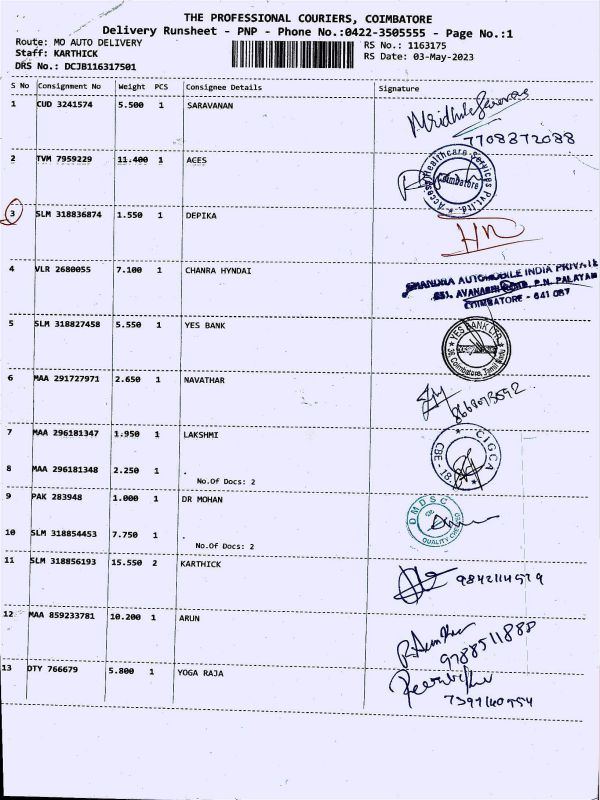 THE PROFESSIONAL COURIERS, COIMBATORE
Delivery Runsheet - PNP - Phone No.:0422-3505555 - Page No.:1
Route: MO AUTO DELIVERY
Staff: KARTHICK
DRS No.: DCJB116317501
RS No.: 1163175
RS Date: 03-May-2023
S No Consignment No Weight PCS Consignee Details Signature
1 CUD 3241574 5.500 1 SARAVANAN
7708372088
2 TVM 7959229 11.400 1 ACES
Access Healthcare Services Pvt.Ltd. Coimbatore
3 SLM 318836874 1.550 1 DEPIKA
4 VLR 2680055 7.100 1 CHANRA HYNDAI
CHANDRA AUTOMOBILE INDIA PRIVATE
P.N. PALAYAM
COIMBATORE - 641 037
5 SLM 318827458 5.550 1 YES BANK
YES BANK LTD. Coimbatore, Tamil Nadu
6 MAA 291727971 2.650 1 NAVATHAR
7 MAA 296181347 1.950 1 LAKSHMI
CIGCA CBE - 18
8 MAA 296181348 2.250 1 .
No.Of Docs: 2
9 PAK 283948 1.000 1 DR MOHAN
DMDSC QUALITY CHECKED
10 SLM 318854453 7.750 1 .
No.Of Docs: 2
11 SLM 318856193 15.550 2 KARTHICK
12 MAA 859233781 10.200 1 ARUN
13 DTY 766679 5.800 1 YOGA RAJA